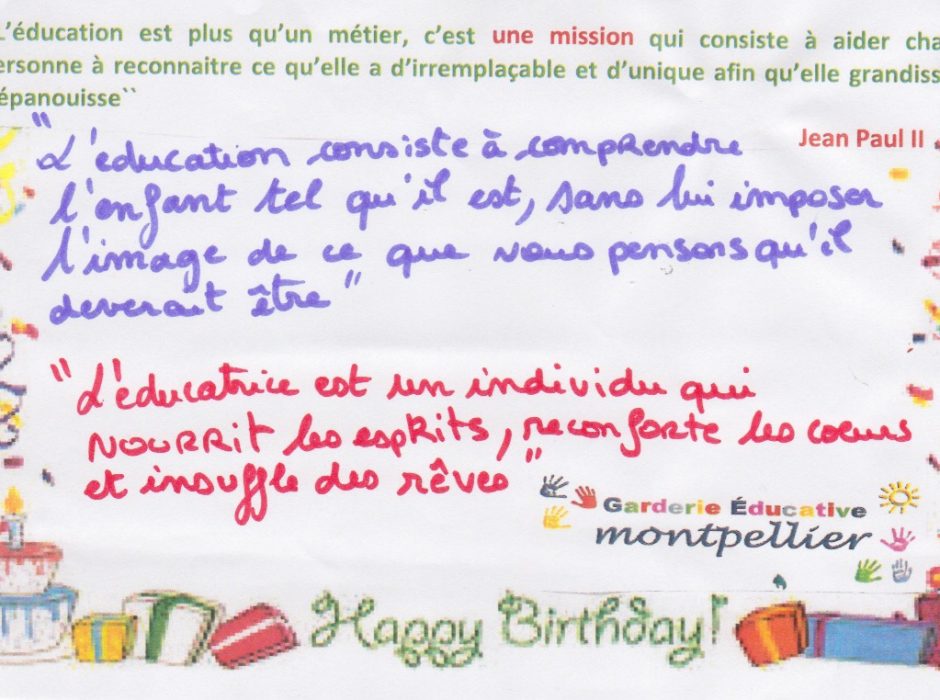 L'éducation est plus qu'un métier, c'est une mission qui consiste à aider cha
ersonne à reconnaitre ce qu'elle a d'irremplaçable et d'unique afin qu'elle grandiss
épanouisse``
Jean Paul II
"L'education consiste à comprendre
l'enfant tel qu'il est, sans lui imposer
l'image de ce que nous pensons qu'il
deverait être"
"L'éducatrice est un individu qui
NOURRit les espRits, reconforte les coeurs
et insuffle des rêves"
Garderie Éducative
montpellier
Happy Birthday!